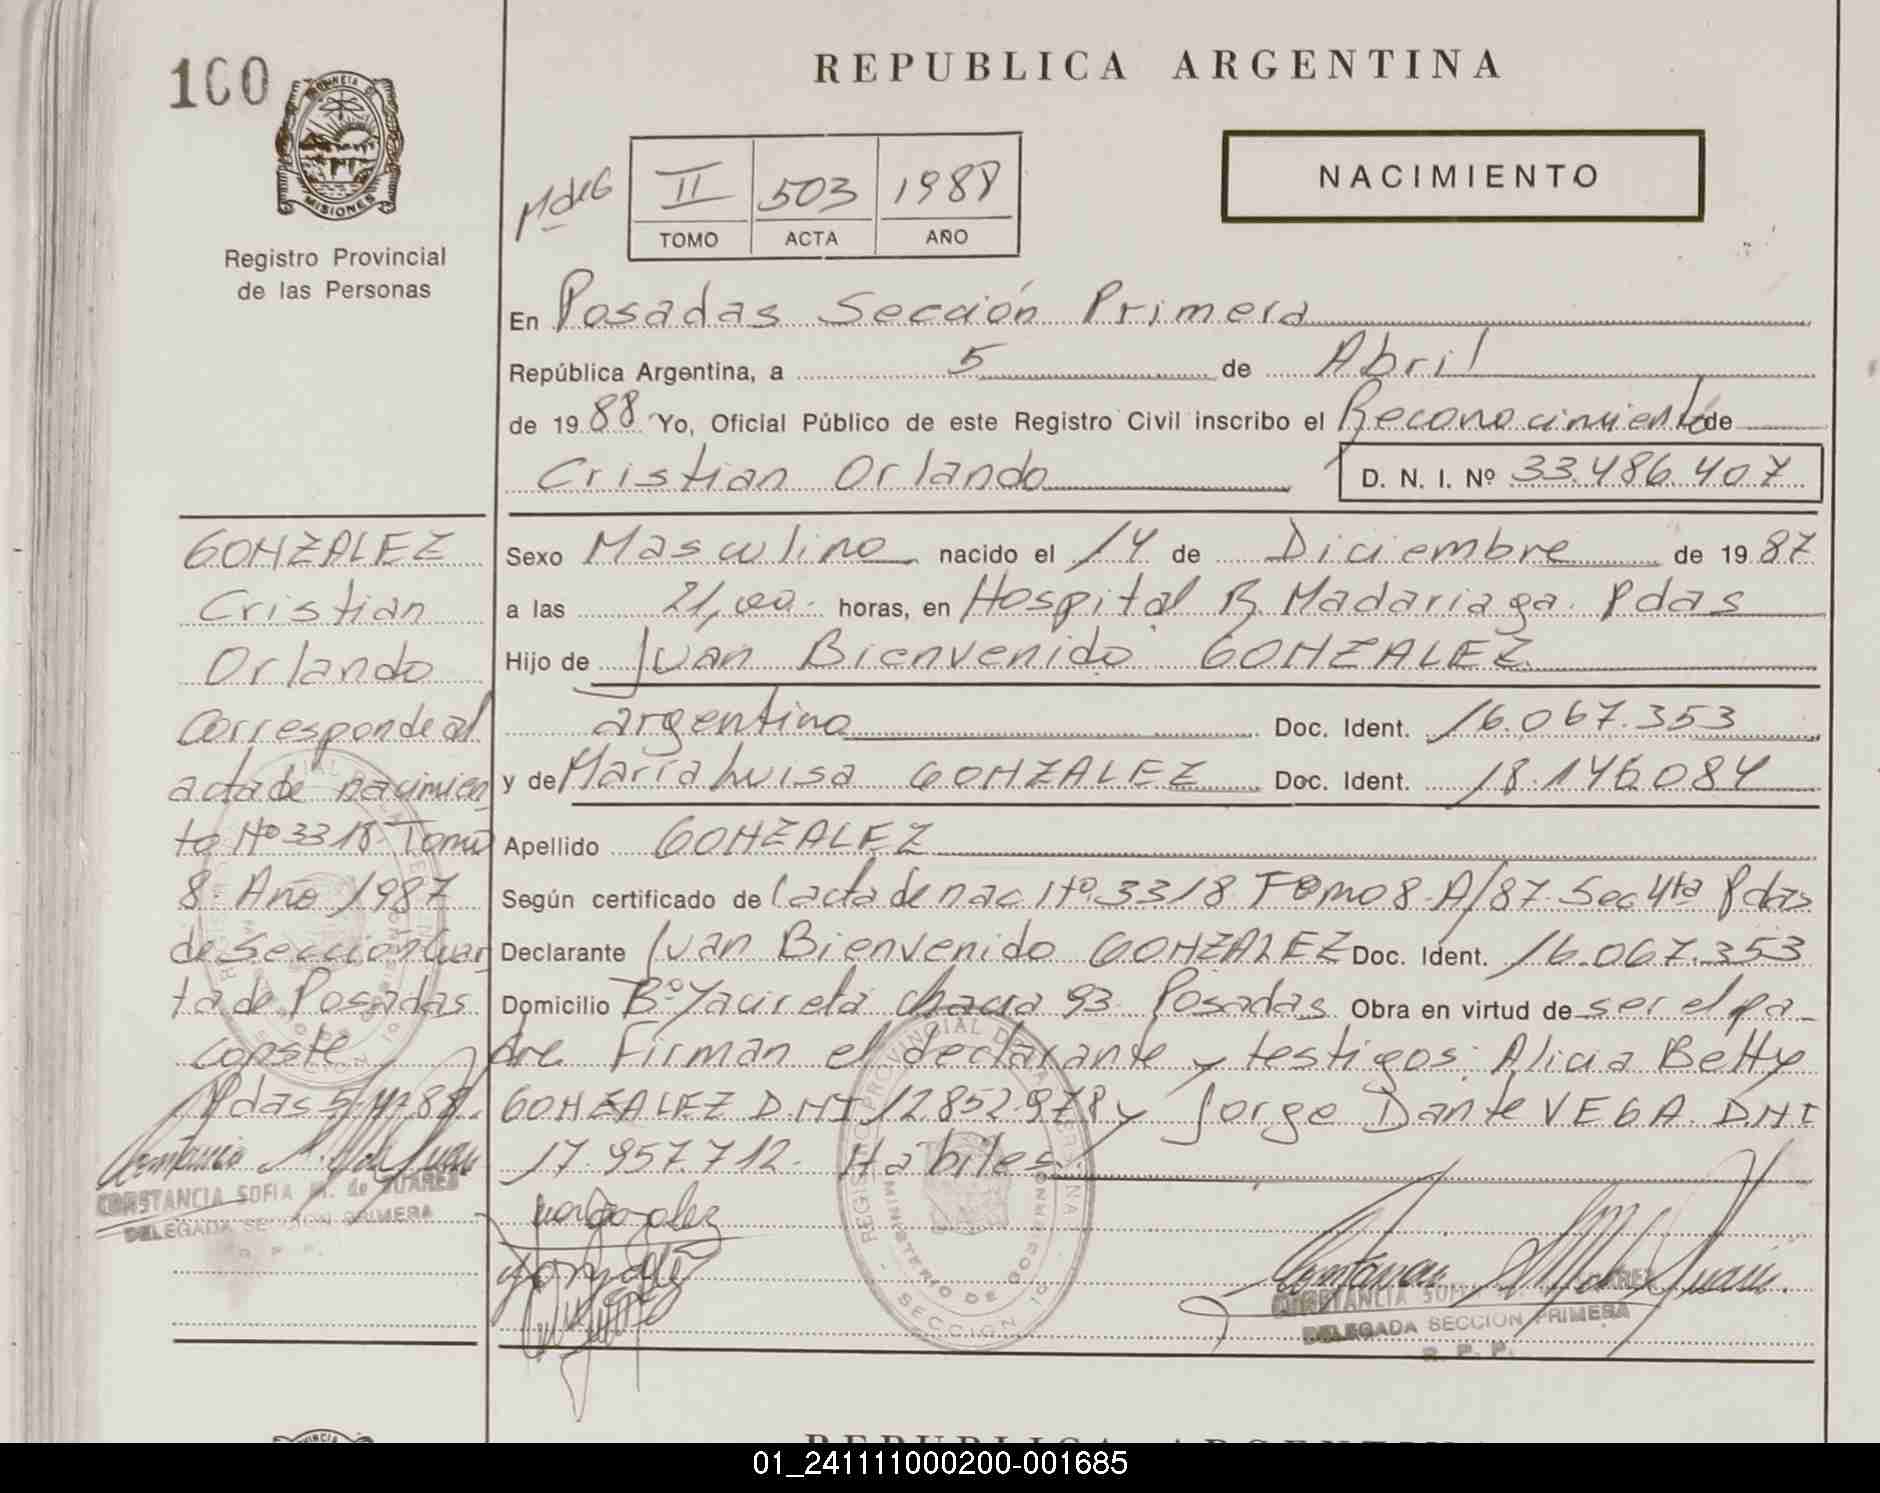 100
PROVINCIA DE
MISIONES
Registro Provincial
de las Personas
REPUBLICA ARGENTINA
MdeG
II 503 1988
TOMO ACTA AÑO
NACIMIENTO
En Posadas Sección Primera
República Argentina, a 5 de Abril
de 1988 Yo, Oficial Público de este Registro Civil inscribo el Reconocimiento de
Cristian Orlando D. N. I. Nº 33.486.407
Sexo Masculino nacido el 14 de Diciembre de 1987
a las 21,00. horas, en Hospital R. Madariaga. Pdas
Hijo de Juan Bienvenido GONZALEZ
argentino Doc. Ident. 16.067.353
y de María Luisa GONZALEZ Doc. Ident. 18.146.084
Apellido GONZALEZ
Según certificado de l acta de nac Nº 3318 Tomo 8. A/87. Sec 4ta Pdas
Declarante Juan Bienvenido GONZALEZ Doc. Ident. 16.067.353
Domicilio Bº Yacireta chacra 93. Posadas. Obra en virtud de ser el pa-
dre. Firman el declarante y testigos: Alicia Betty
GONZALEZ D.NI 12.852.978 y Jorge Dante VEGA. D.NI
17.957.712. Hábiles.
GONZALEZ
Cristian
Orlando
Corresponde al
acta de nacimien
to Nº 3318. Tomo
8. Año 1987
de Sección Cuar
ta de Posadas.
conste
Pdas 5/4/88.
CONSTANCIA SOFIA M. de SUAREZ
DELEGADA SECCION PRIMERA
R. P. P.
REGISTRO PROVINCIAL DE LAS PERSONAS
MINISTERIO DE GOBIERNO
SECCION 1º
CONSTANCIA SOFIA M. de SUAREZ
DELEGADA SECCION PRIMERA
R. P. P.
REPUBLICA ARGENTINA
01_241111000200-001685